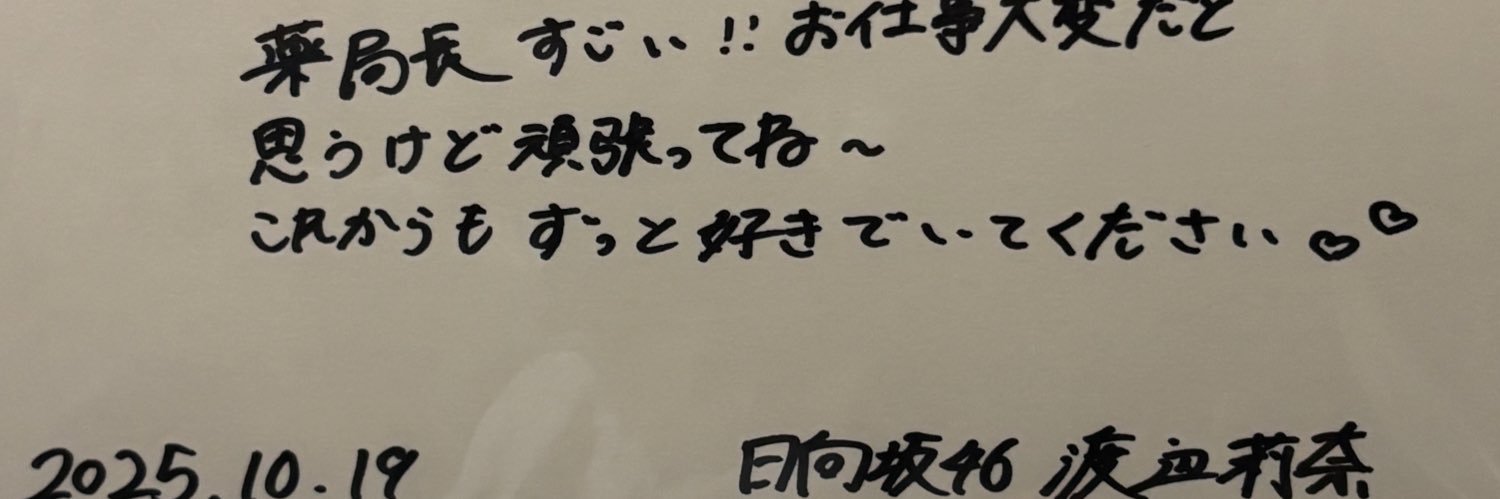 薬局長 すごい!! お仕事大変だと
思うけど頑張ってね～
これからも ずっと好きでいてください。♡♡
2025.10.19
日向坂46 渡辺莉奈